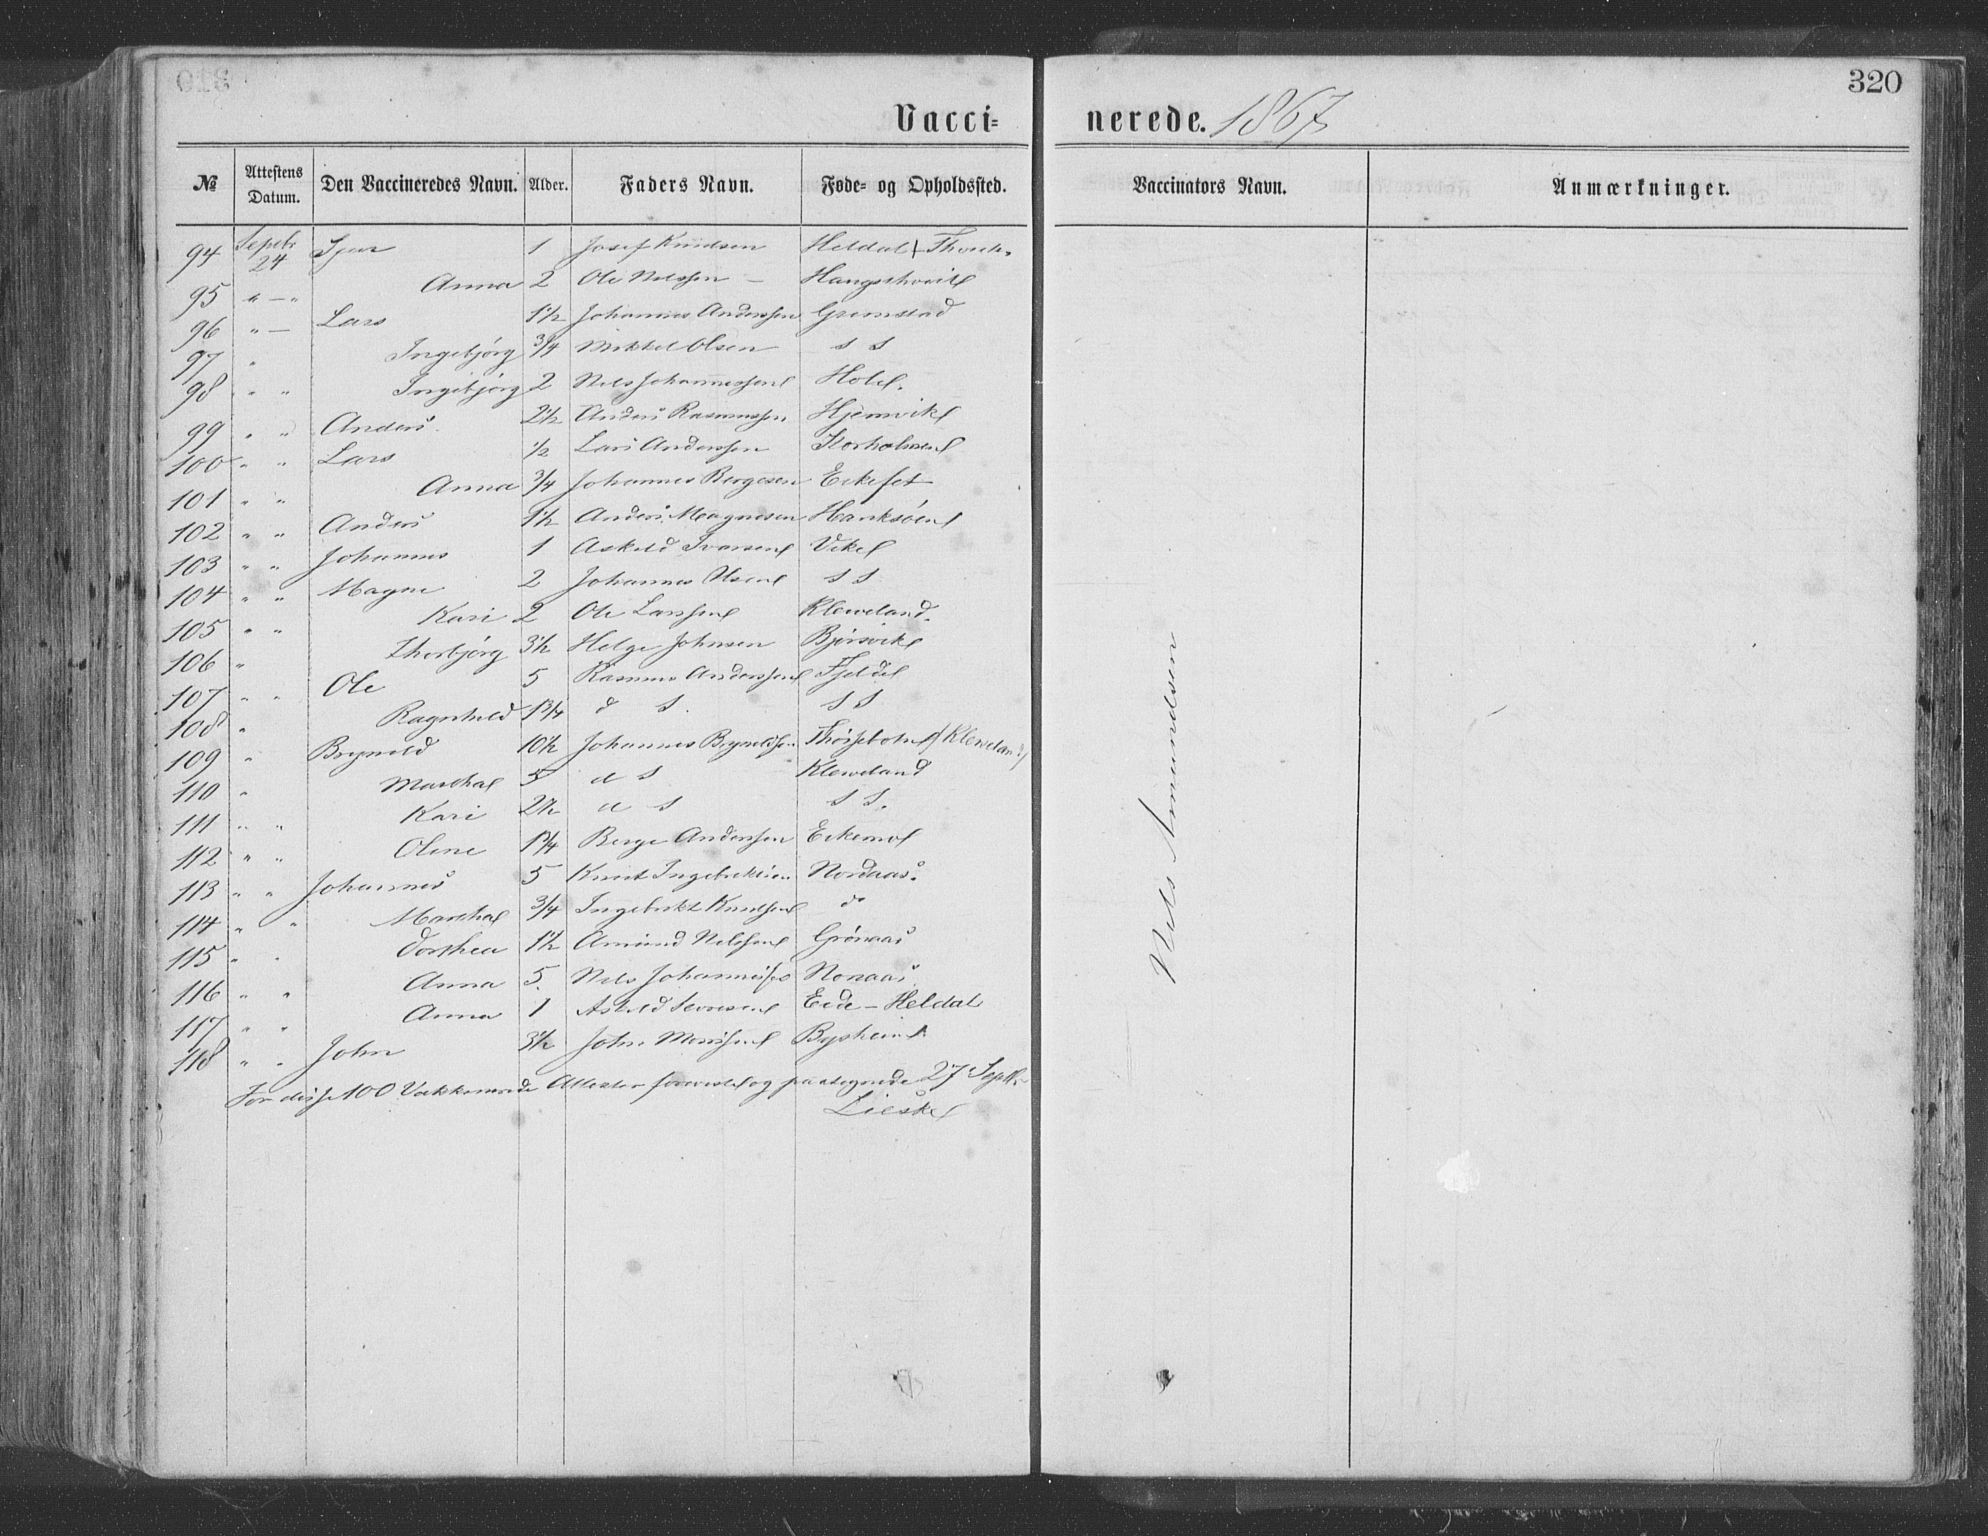 320
Vacci= nerede. 1867
№ Attestens Datum. Den Vaccineredes Navn. Alder. Faders Navn. Føde= og Opholdssted. Vaccinators Navn. Anmærkninger.
94 Septbr 24 1 Josef Knudsen Heldal
95 " — " Anna 2 Ole Nelssen —
96 " — Lars 1½ Johannes Anderssen Grimstad
97 " Ingebjørg ¾ Mikkel Olsen s s
98 " " Ingebjørg 2 Nels Johannessen
99 " " Anders 2½ Anders Rasmussen Hjemvik
100 " " Lars ½ Lars Anderssen Storholmen
101 " " Anna ¾ Johannes Bergesen Eikefet
102 " " Anders 1½ Anders Magnesen
103 " " Johannes 1 Askeld Ivarsen Vik
104 " " Magne 2 Johannes Olsen s s
105 " " Kari 2 Ole Larssen Kleveland.
106 " Thorbjørg 3½ Helge Johnsen Bjørsvik
107 " " Ole 5 Rasmus Anderssen Fjeldet
108 " Ragnhild 1¾ d s. s s
109 " Brynild 10½ Johannes Brynildsen
110 " Marthe 5 d s Kleveland
111 " " Kari 2½ d s s s.
112 " " Oline 1¾ Berge Anderssen Eikemo
113 " " Johannes 5 Knut Ingebriktsen Nordaas.
114 " " Marthe ¾ Ingebrikt Knudsen do
115 " " Dorthea 1½ Amund Nelssen Grønaas
116 " " Anna 5. Nels Johannessen
117 " " Anna 1 Eide — Heldal
118 " " John 3½ John Monssen Bysheim
For disse 100 Vakkinerede Attester foreviste og paategnede 27 Septbr
Nils Amundsen